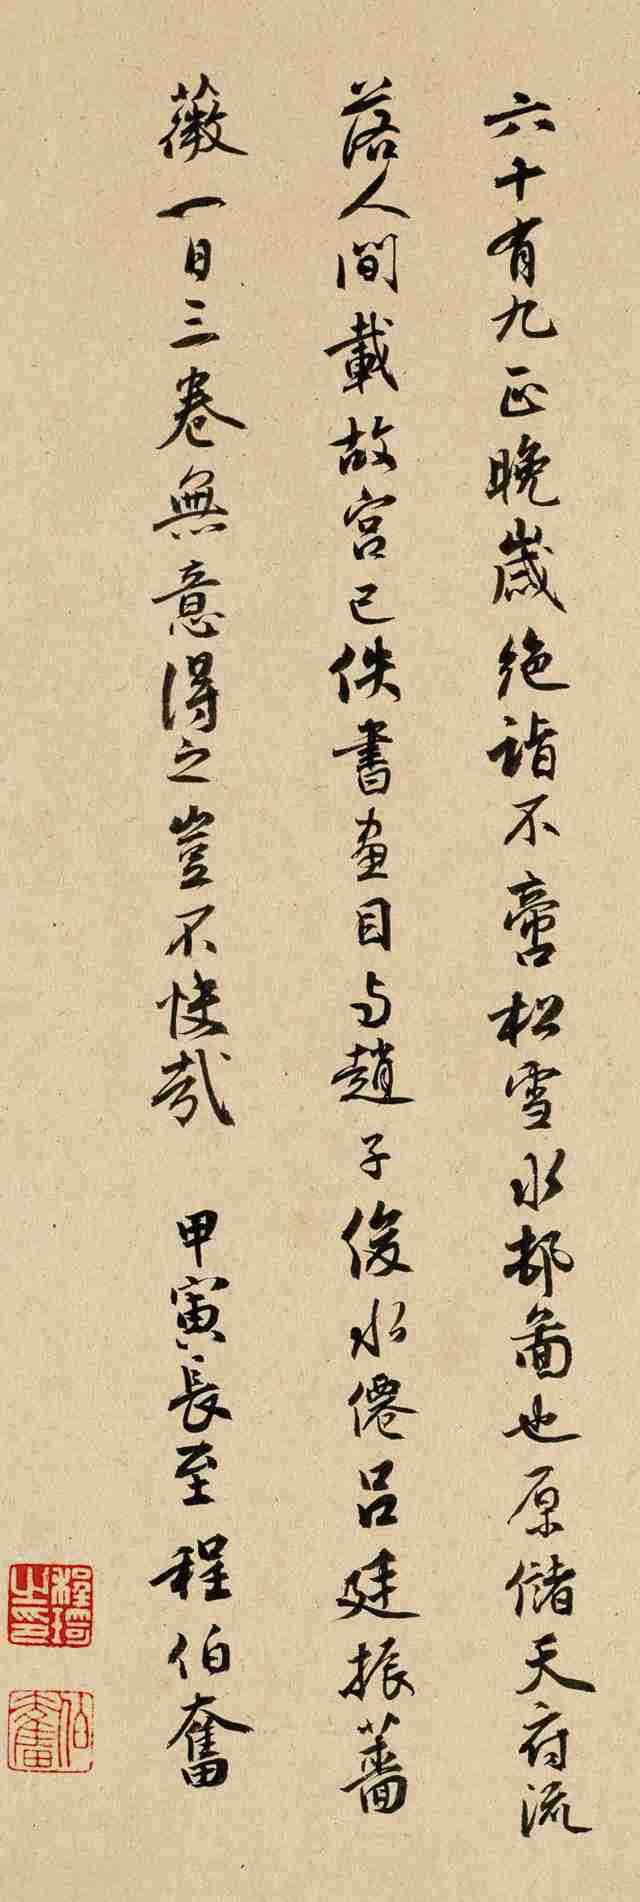 六十有九正晚歲絶詣不啻松雪水邨啚也原儲天府流
落人間載故宮已佚書畫目与趙子俊水僊呂廷振薔
薇一日三卷無意得之豈不快哉 甲寅長至 程伯奮
程琦之印
伯奮